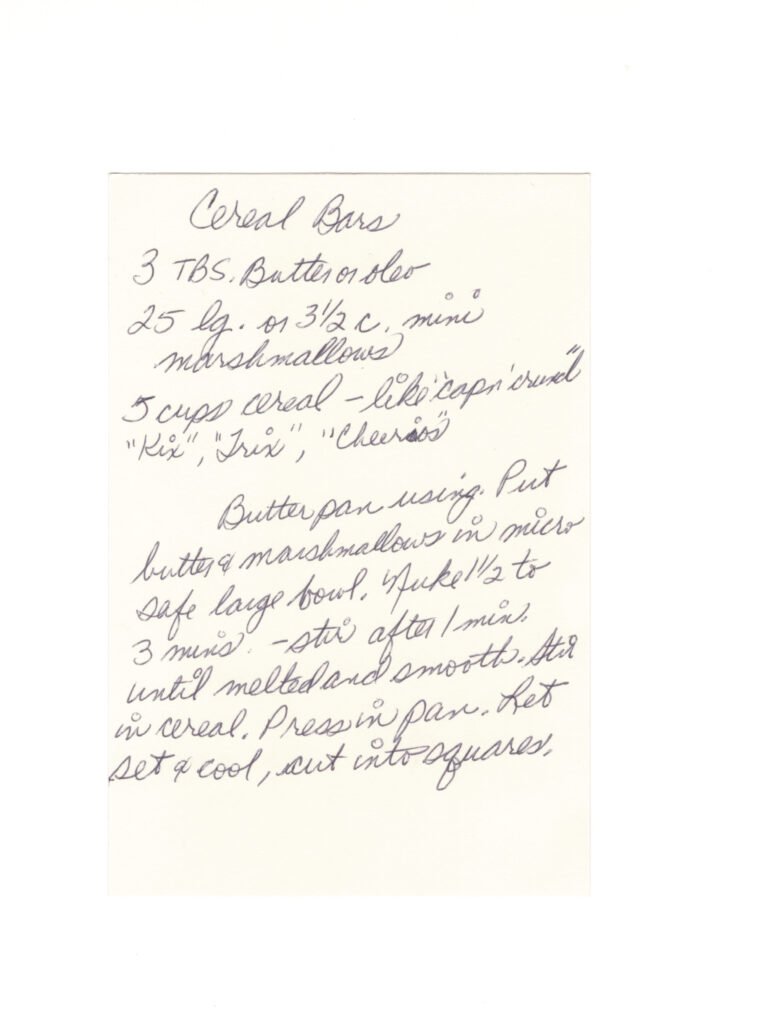 Cereal Bars
3 TBS. Butter or oleo
25 lg. or 3 1/2 c. mini
marshmallows
5 cups cereal - like "capn' crunch"
"Kix", "Trix", "Cheerios"
Butter pan using. Put
butter & marshmallows in micro
safe large bowl. Nuke 1 1/2 to
3 mins. - stir after 1 min.
until melted and smooth. Stir
in cereal. Press in pan. Let
set & cool, cut into squares.